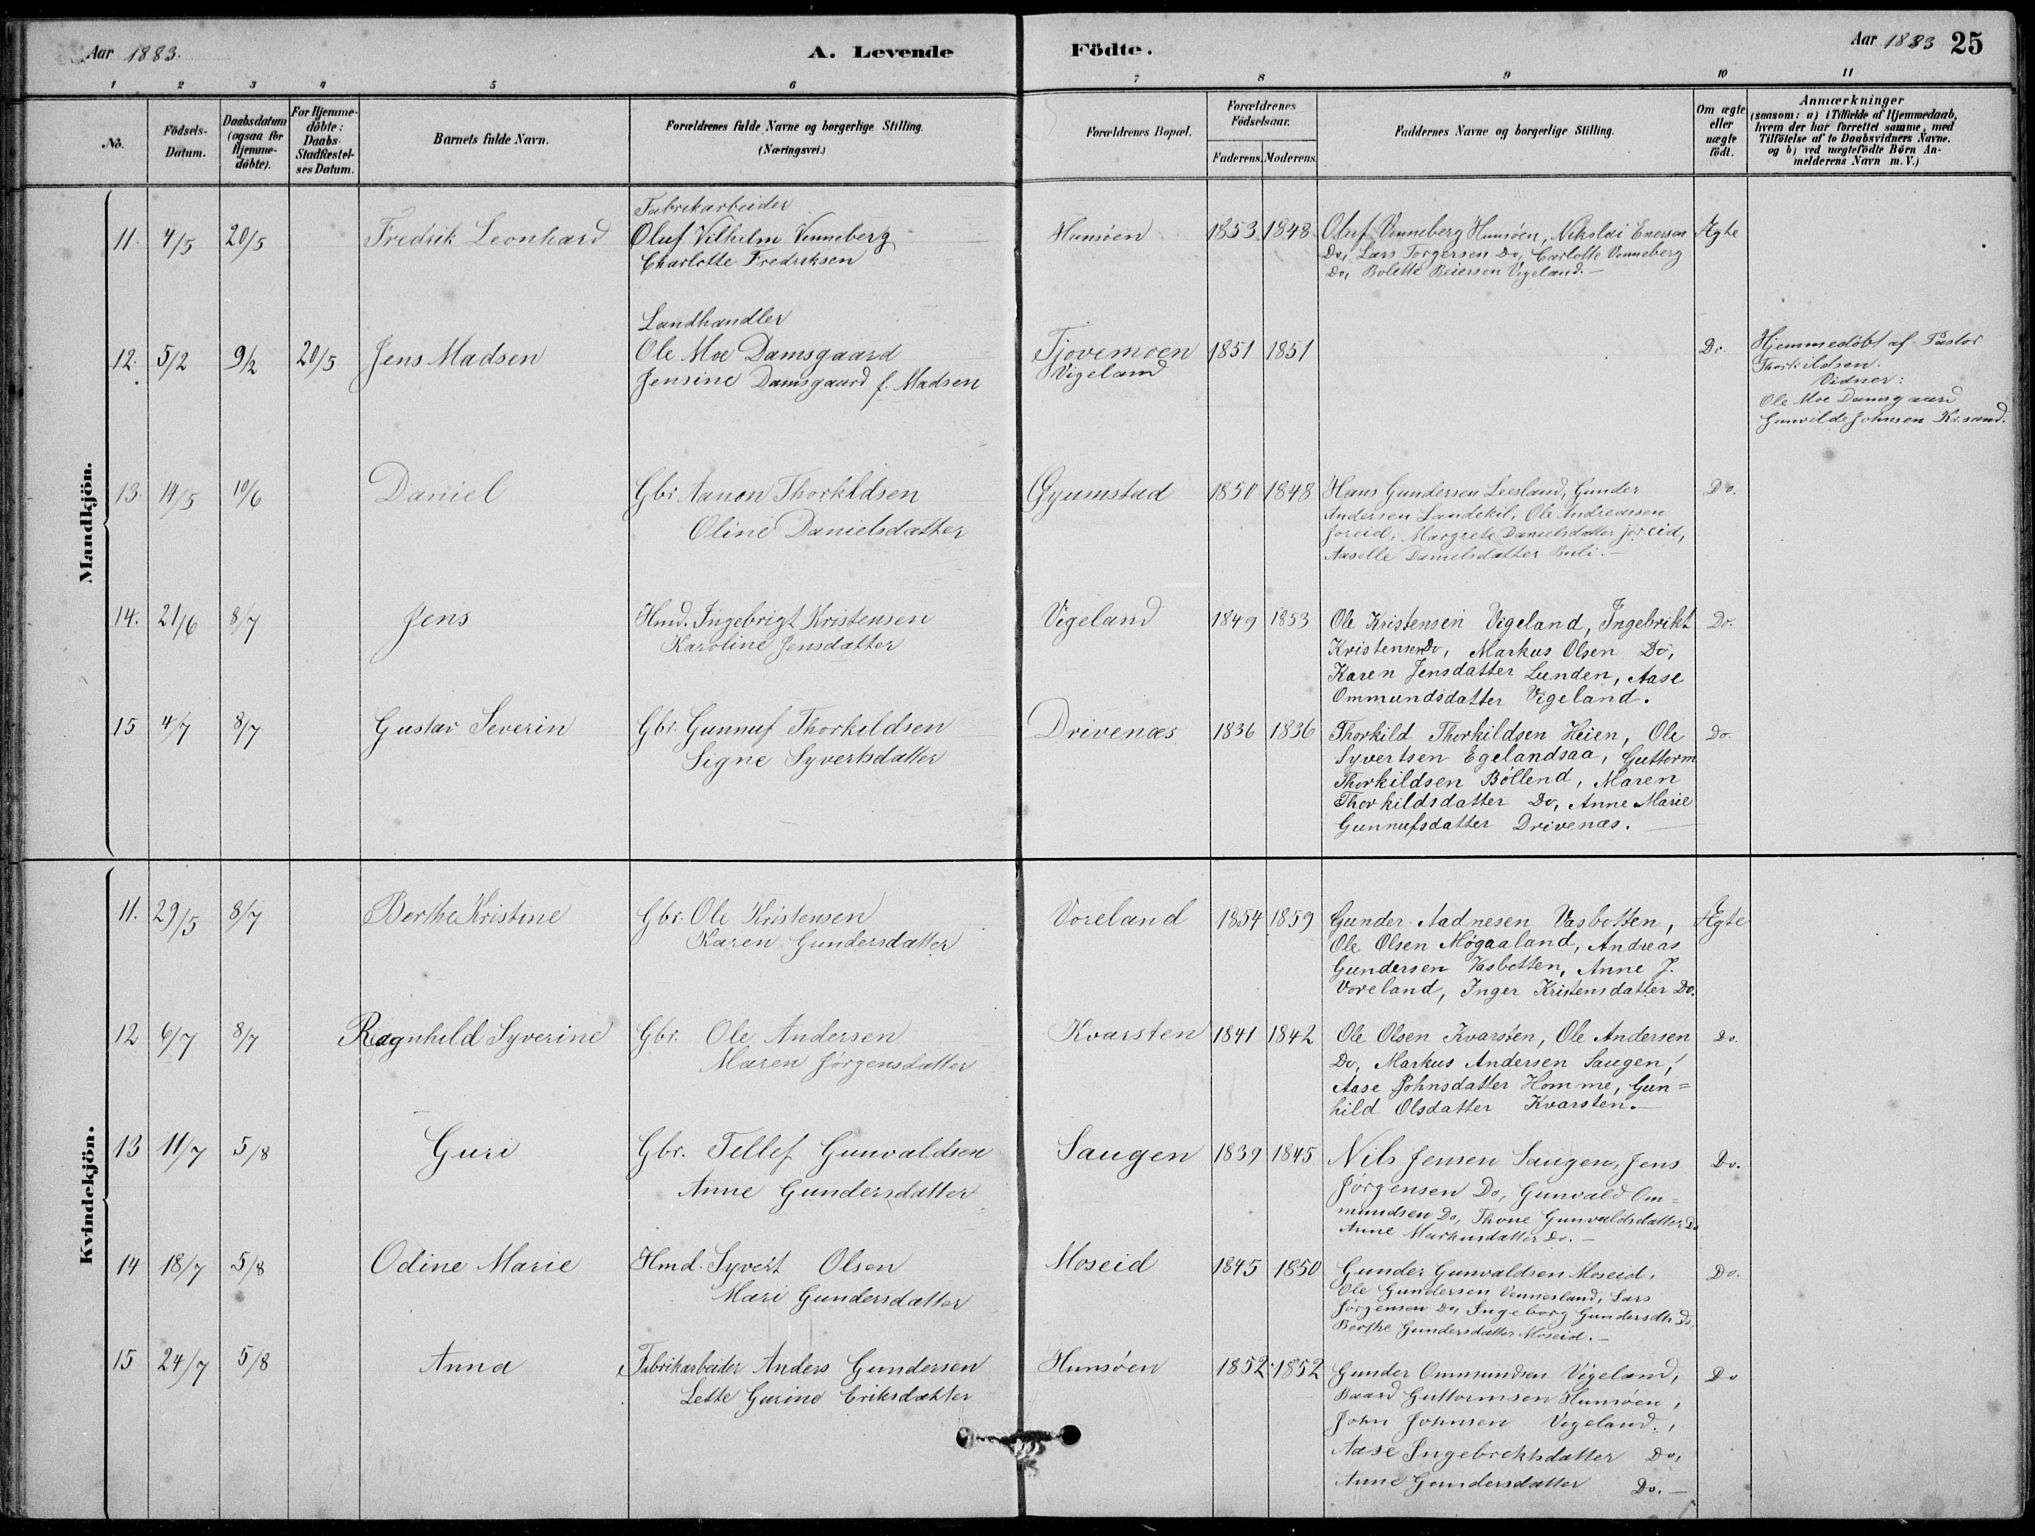 Aar 1883.
A. Levende
Födte.
Aar 1883
25
1 2 3 4 5 6 7 8 9 10 11
No.
Födsels-
Datum.
Daabsdatum
(ogsaa for
Hjemme-
döbte).
For Hjemme-
döbte:
Daabs-
Stadfæstel-
ses Datum.
Barnets fulde Navn.
Forældrenes fulde Navne og borgerlige Stilling.
(Næringsvei.)
Forældrenes Bopæl.
Forældrenes
Födselsaar.
Faderens. Moderens.
Faddernes Navne og borgerlige Stilling.
Om ægte
eller
uægte
födt.
Anmærkninger
(saasom: a) i Tilfælde af Hjemmedaab,
hvem der har forrettet samme, med
Tilföielse af to Daabsvidners Navne.
og b) ved uægtefödte Börn An-
melderens Navn m. V.)
Mandkjön.
11. 4/5 20/5
Fredrik Leonhard
Fabrikarbeider
Oluf Vilhelm Venneberg
Charlotte Fredriksen
Hunsöen
1853 1848
Oluf Venneberg Hunsöen, Nikolai Enersen
Do, Lars Torgersen Do, Carlotte Venneberg
Do, Bolette Beiersen Vigeland.
Ægte
12. 5/2 9/2 20/5
Jens Madsen
Landhandler
Ole Moe Damsgaard
Jensine Damsgaard f. Madsen
Tjovemoen
Vigeland
1851 1851
Do.
Hjemmedöbt af Pastor
Thorkildsen.
Vidner:
Ole Moe Damsgaard
Gunvilde Johnsen Kr.sand.
13. 14/5 10/6
Daniel
Gbr. Aanon Thorkildsen
Oline Danielsdatter
Gyumstad
1850 1848
Hans Gundersen Leesland, Gunder
Andersen Landekil, Ole Andreassen
Joreid, Margrete Danielsdatter Joreid,
Aaselle Danielsdatter Buli.
Do.
14. 21/6 8/7
Jens
Hmd. Ingebrigt Kristensen
Karoline Jensdatter
Vigeland
1849 1853
Ole Kristensen Vigeland, Ingebrikt
Kristensen Do, Markus Olsen Do,
Karen Jensdatter Lunden, Aase
Ommundsdatter Vigeland.
Do.
15 4/7 8/7
Gustav Severin
Gbr. Gunnuf Thorkildsen
Signe Syvertsdatter
Drivenæs
1836 1836
Thorkild Thorkildsen Heien, Ole
Syvertsen Egelandsaa, Guttorm
Thorkildsen Böllend, Maren
Thorkildsdatter Do, Anne Marie
Gunnufsdatter Drivenæs.
Do.
Kvindekjön.
11. 29/5 8/7
Berthe Kristine
Gbr. Ole Kristensen
Karen Gundersdatter
Voreland
1854 1859
Gunder Aadnesen Vasbotten,
Ole Olsen Møgaaland, Andreas
Gundersen Vasbotten, Anne J.
Voreland, Inger Kristensdatter Do.
Ægte
12 6/7 8/7
Ragnhild Syverine
Gbr. Ole Andersen
Maren Jørgensdatter
Kvarsten
1841 1842
Ole Olsen Kvarsten, Ole Andersen
Do, Markus Andersen Saugen,
Aase Johnsdatter Homme, Gun=
hild Olsdatter Kvarsten.
Do.
13 11/7 5/8
Guri
Gbr. Tellef Gunvaldsen
Anne Gundersdatter
Saugen
1839 1845
Nils Jensen Saugen, Jens
Jörgensen Do, Gunvald Om=
mundsen Do, Thone Gunvaldsdatter Do
Anne Markusdatter Do.
Do.
14 18/7 5/8
Odine Marie
Hmd. Syvert Olsen
Mari Gundersdatter
Moseid
1845 1850
Gunder Gunvaldsen Moseid,
Ole Gundersen Vennesland, Lars
Jörgensen Do, Ingeborg Gundersdtr Do,
Berthe Gundersdatter Moseid.
Do.
15 24/7 5/8
Anna
Fabrikarbeider Anders Gundersen
Lette Gurine Eriksdatter
Hunsøen
1852 1852
Gunder Ommundsen Vigeland,
Baard Guttormsen Hunsøen,
John Johnsen Vigeland,
Aase Ingebrektsdatter Do,
Anne Gundersdatter Do.
Do